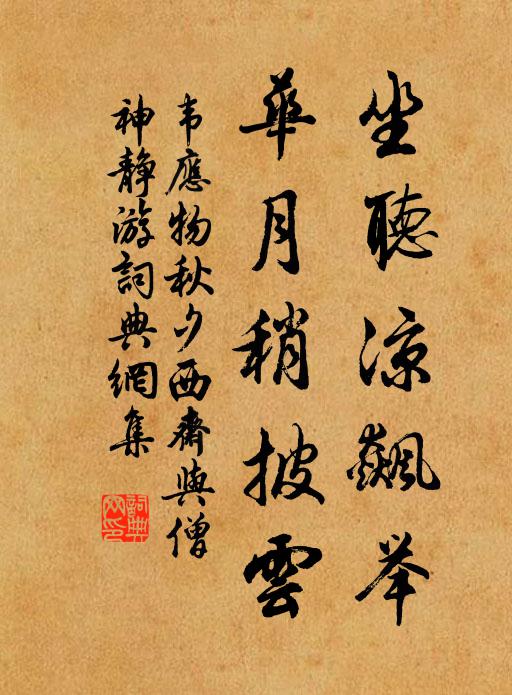 坐聽涼飆举
華月稍披雲
韦應物秋夕西齋與僧
神静游詞典網集
詞典网印